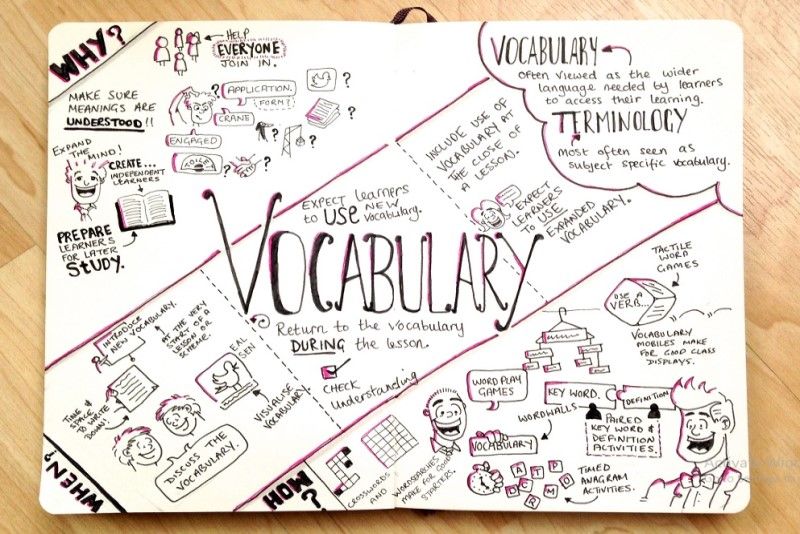 WHY?
HELP
EVERYONE
JOIN IN.
MAKE SURE
MEANINGS ARE
UNDERSTOOD!!
APPLICATION.
FORM?
CRANE
ENGAGED
TOILET
? ? ? ? ? ? ?
EXPAND
THE MIND!
CREATE...
INDEPENDENT
LEARNERS
PREPARE
LEARNERS
FOR LATER
STUDY.
VOCABULARY
Often viewed as the wider
language needed by learners
to access their learning.
TERMINOLOGY
Most often seen as
subject specific vocabulary.
INCLUDE USE OF
VOCABULARY AT
THE CLOSE OF
A LESSON.
EXPECT
LEARNERS
TO USE
EXPANDED
VOCABULARY.
EXPECT learners
to USE NEW
vocabulary.
VOCABULARY
Return to the vocabulary
DURING the lesson.
CHECK
Understanding
INTRODUCE
NEW VOCABULARY.
AT THE VERY
START OF A
LESSON OR
SCHEME.
TIME &
SPACE
TO WRITE
DOWN!
EAL
SEN
VISUALISE
VOCABULARY
DISCUSS THE
VOCABULARY.
WHEN?
HOW?
CROSSWORDS
AND
WORDSEARCHES
MAKE FOR GOOD
STARTERS.
TACTILE
WORD
GAMES
USE A
VERB...
VOCABULARY
MOBILES MAKE
FOR GOOD CLASS
DISPLAYS.
WORD PLAY
GAMES
KEY WORD.
DEFINITION
WORDWALLS
VOCABULARY
PAIRED
KEY WORD &
DEFINITION
ACTIVITIES.
A T P
D C R M O
TIMED
ANAGRAM
ACTIVITIES.